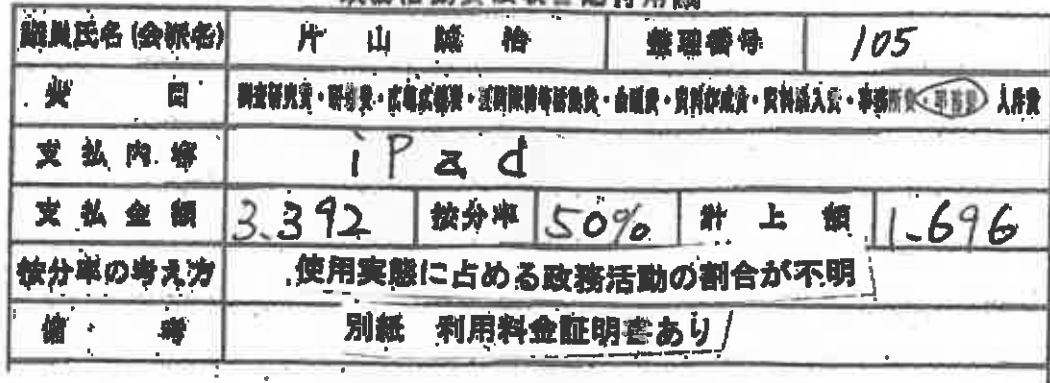 議員氏名(会派名) 片山誠治 整理番号 105
費目 調査研究費・研修費・広聴広報費・要請陳情等活動費・会議費・資料作成費・資料購入費・事務所費・事務費・人件費
支払内容 iPad
支払金額 3.392 按分率 50% 計上額 1.696
按分率の考え方 使用実態に占める政務活動の割合が不明
備考 別紙 利用料金証明書あり